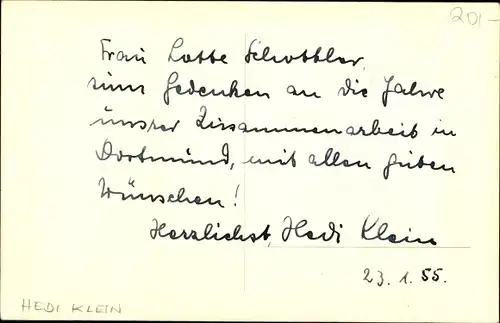 20,-
Frau Lotte Schottler,
zum Gedenken an die Jahre
unsrer Zusammenarbeit in
Dortmund, mit allen guten
Wünschen!
Herzlichst, Hedi Klein
23.1.55.
HEDI KLEIN